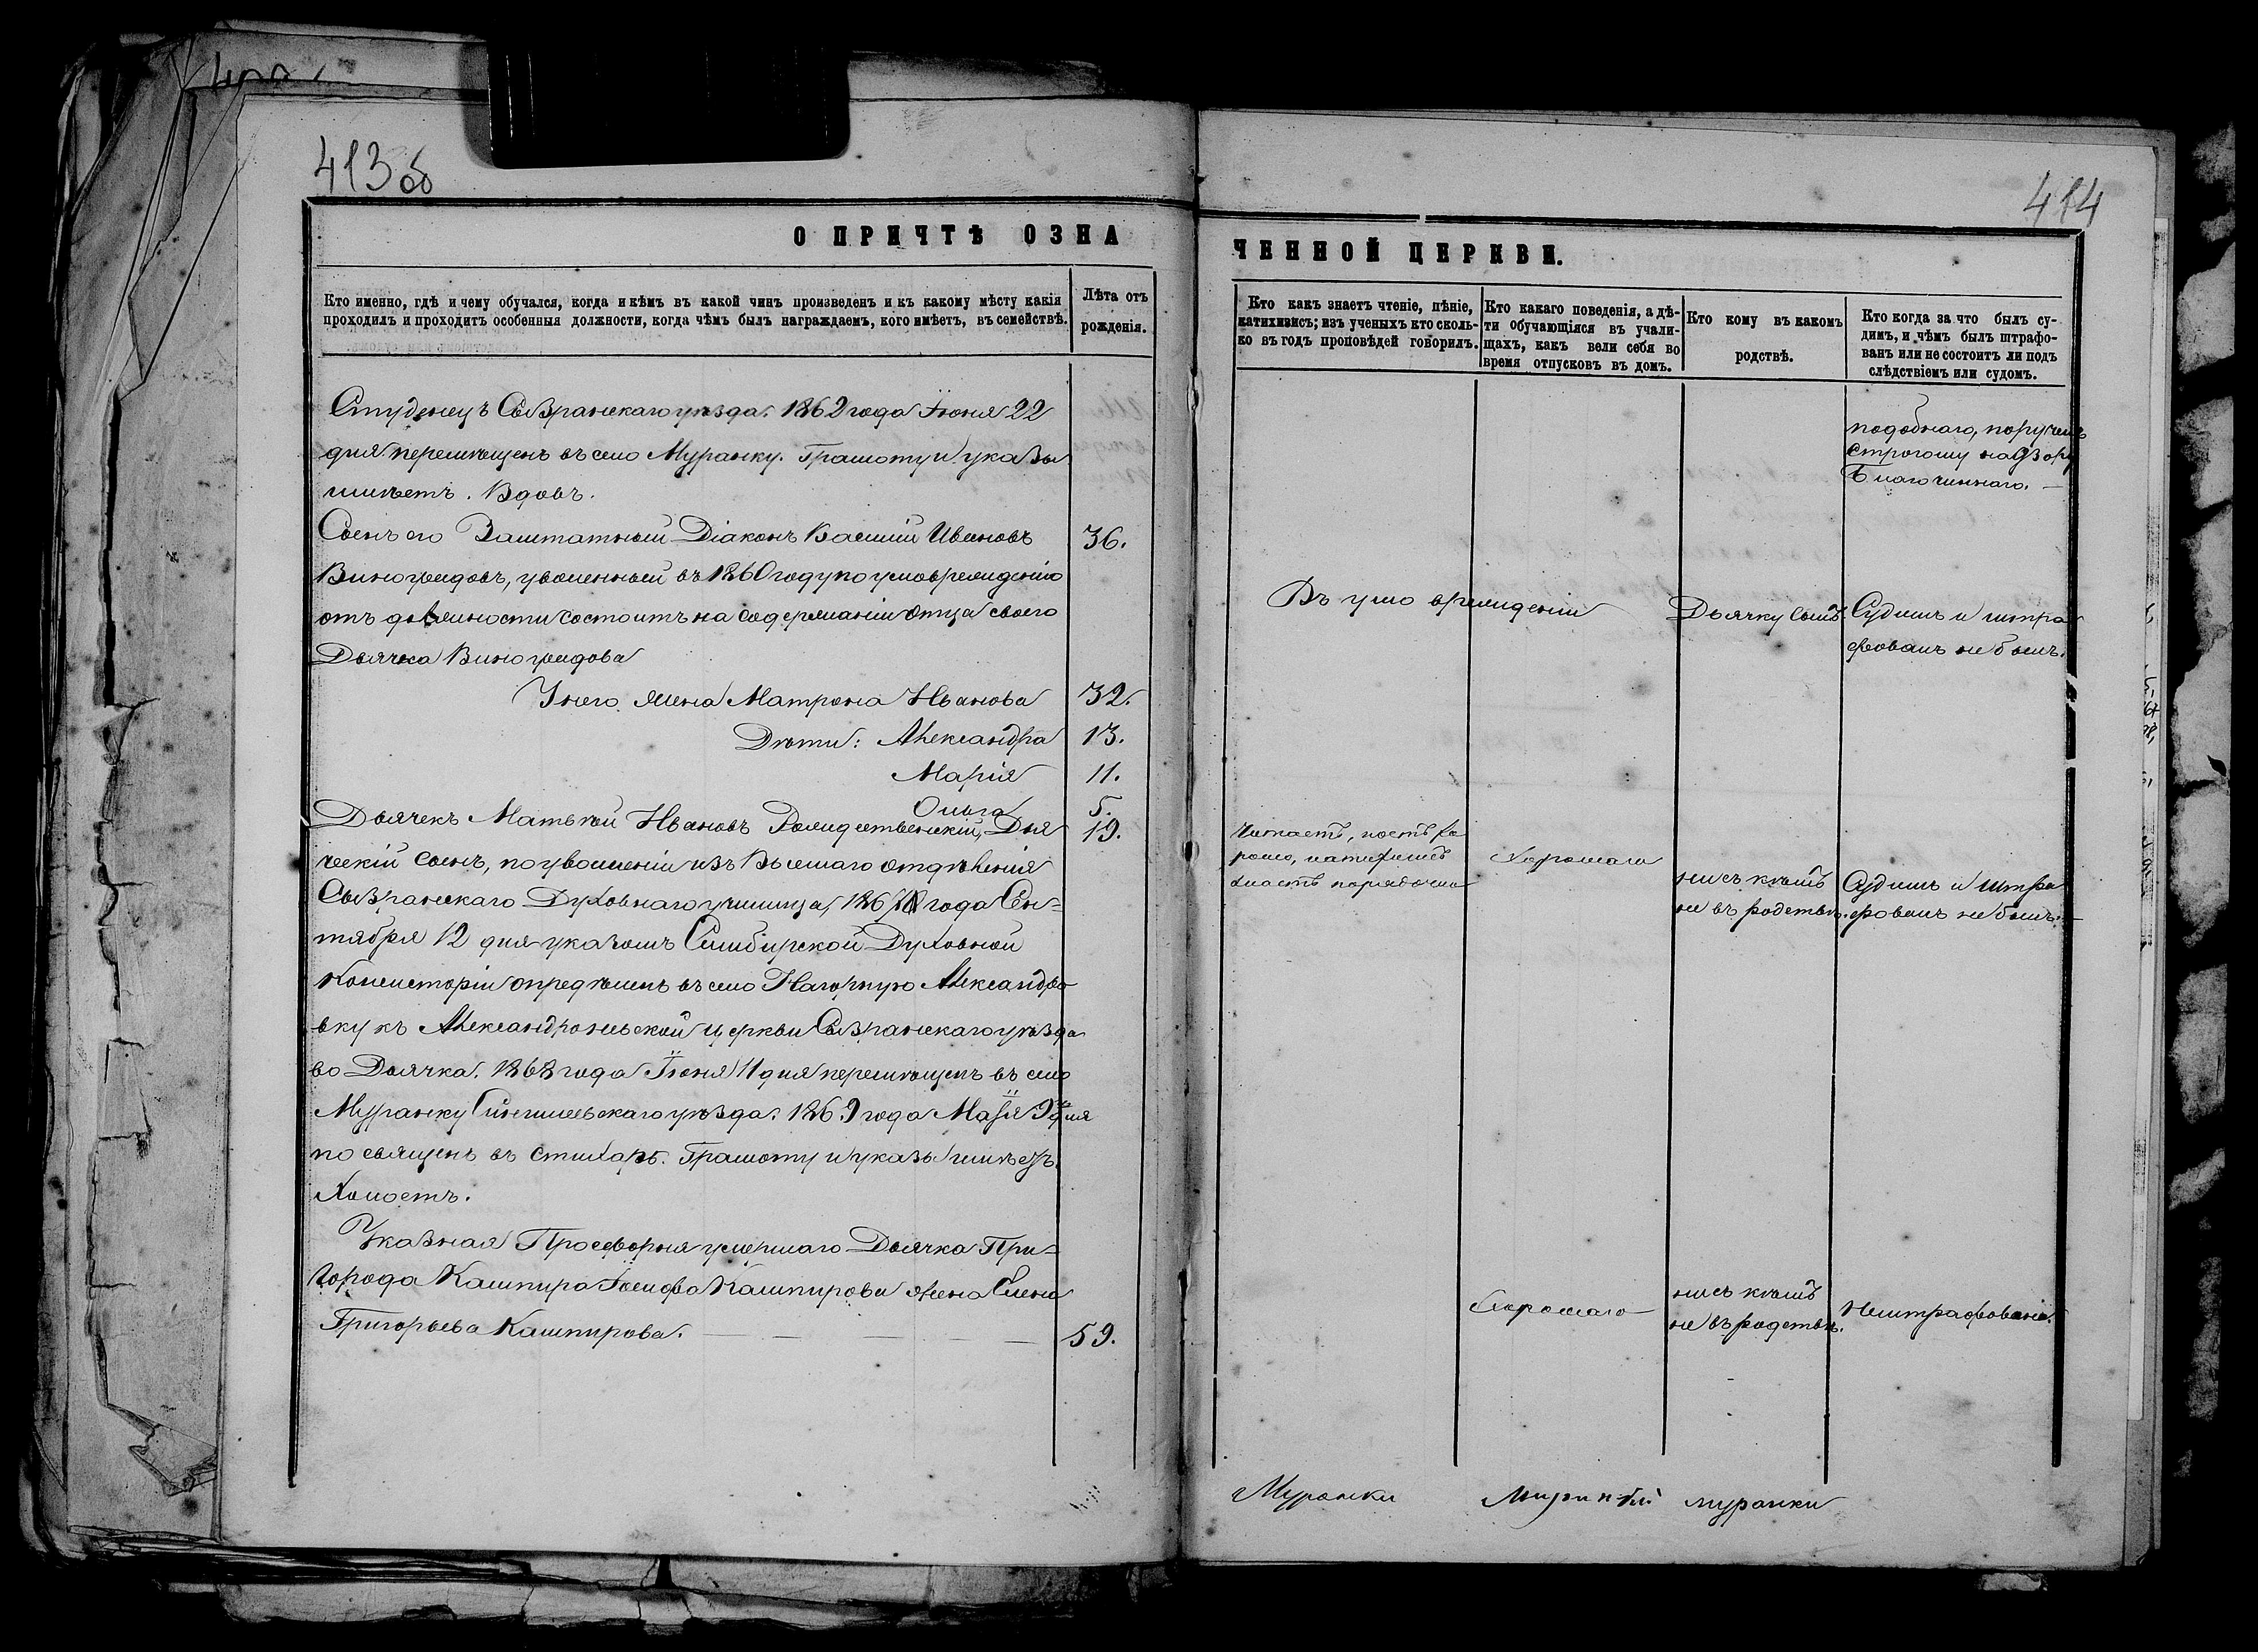 413 об
О ПРИЧТѢ ОЗНА
Кто именно, гдѣ и чему обучался, когда и кѣмъ въ какой чинъ произведенъ и къ какому мѣсту какія
проходилъ и проходитъ особенныя должности, когда чѣмъ былъ награждаемъ, кого имѣетъ, въ семействѣ.
Лѣта отъ
рожденія.
Студенецъ Сызранскаго уѣзда. 1862 года Іюня 22
дня перемѣщенъ въ село Муранку. Грамоту и указы
имѣетъ. Вдовъ.
Сынъ его Заштатный Діаконъ Василій Ивановъ 36.
Виноградовъ, уволенный въ 1860 году по умоврежденію
отъ должности состоитъ на содержаніи отца своего
Дьячка Виноградова
У него жена Матрона Иванова 32.
Дѣти: Александра 13.
Марія 11.
Ольга 5.
Дьячекъ Матвѣй Ивановъ Рождественскій, Дья 19.
ческій сынъ, по увольненіи изъ Высшаго отдѣленія
Сызранскаго Духовнаго училища, года Сен=
тября 12 дня указомъ Симбирской Духовной
Консисторіи опредѣленъ въ село Нагорную Александро
вку къ Александроневской церкви Сызранскаго уѣзда
во Дьячка. 1868 года Іюня 11 дня перемѣщенъ въ село
Муранку Сингилеевскаго уѣзда. 1869 года Маія 9 дня
посвященъ въ стихарь. Грамоту и указы имѣетъ.
Холостъ.
Указная Просфорня умершаго Дьячка При=
города Кашпира Іосифа Кашпирова жена Елена
Григорьева Кашпирова. 59.
414
ЧЕННОЙ ЦЕРКВИ.
Кто какъ знаетъ чтеніе, пѣніе,
катихизисъ; изъ ученыхъ кто сколь-
ко въ годъ проповѣдей говорилъ.
Кто какаго поведенія, а дѣ-
ти обучающіяся въ учили-
щахъ, какъ вели себя во
время отпусковъ въ домъ.
Кто кому въ какомъ
родствѣ.
Кто когда за что былъ су-
димъ, и чѣмъ былъ штрафо-
ванъ или не состоитъ ли подъ
слѣдствіемъ или судомъ.
подобнаго, порученъ
строгому надзору
Благочиннаго.
Въ умоврежденіи
Дьячку сынъ.
Судимъ и штра
фованъ не былъ.
Читаетъ, поетъ хо
рошо, катихизисъ
знаетъ порядочно
Хорошаго
ни съ кѣмъ
не въ родствѣ.
Судимъ и штра
фованъ не былъ.
Хорошаго
ни съ кѣмъ
не въ родствѣ.
Нештрафована.
Муранки
муранки